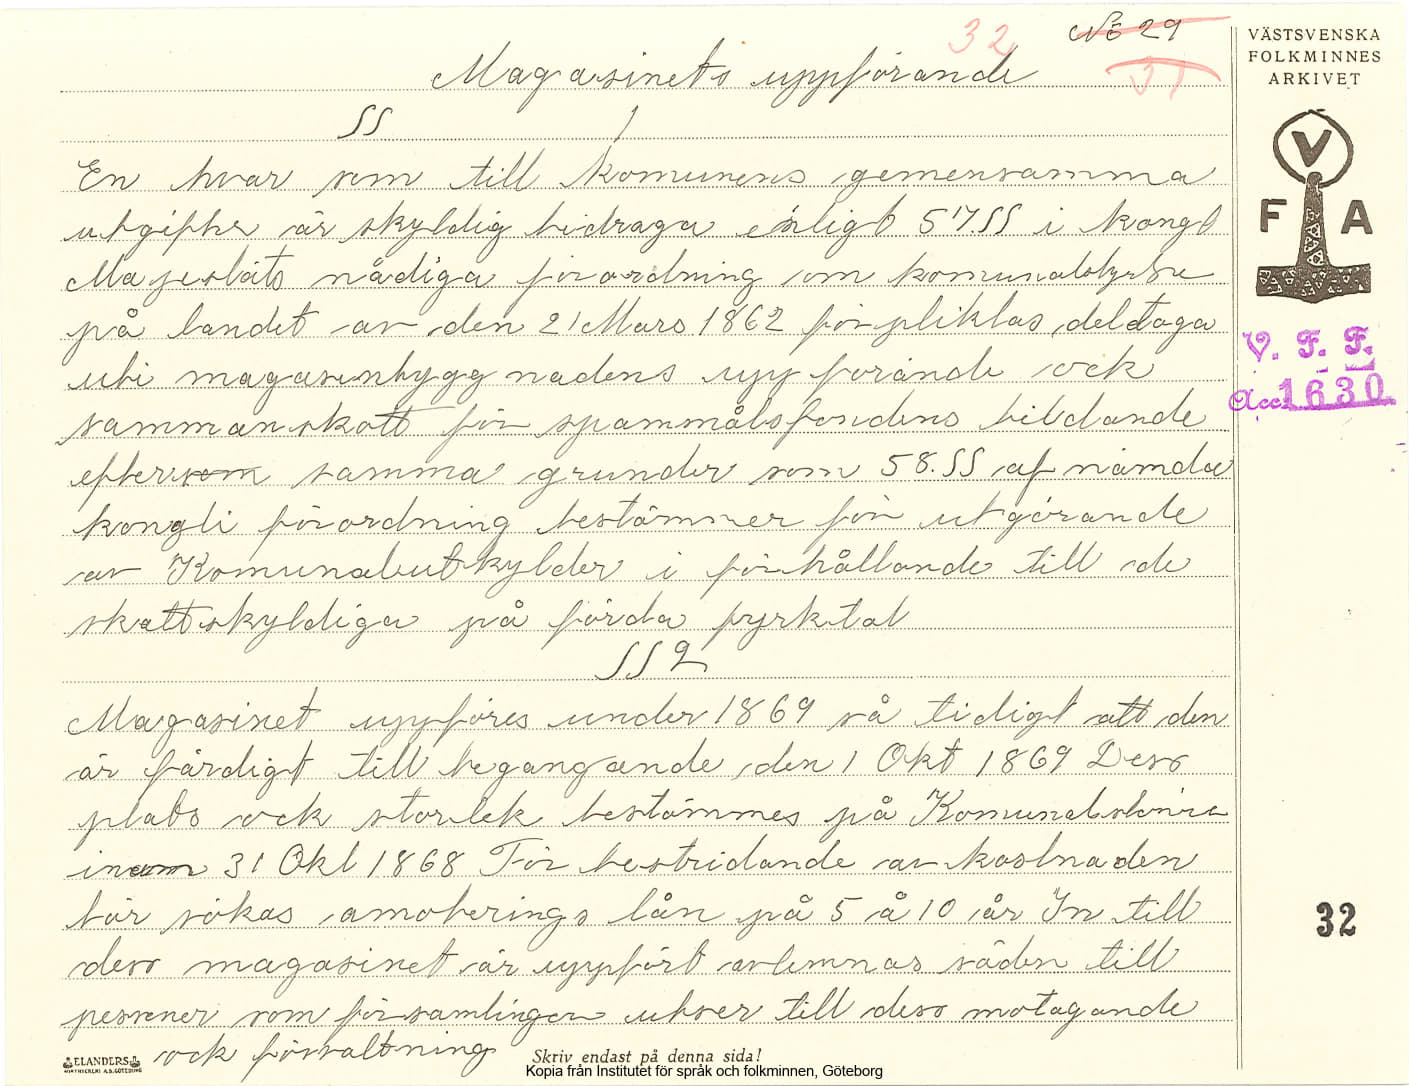 32 No 29
31
Magasinets uppförande
SS 1
En hvar som till komunens gemensamma
utgifter är skyldig bidraga enligt 57.SS i kongl
Majestäts nådiga förordning om komunalstyrelse
på landet av den 21 Mars 1862 förpliktas deltaga
uti magasinsbyggnadens uppförande ock
sammanskott för spannmålsfondens bildande
efter som samma grunder som 58.SS af nämda
kongli förordning bestämmer för utgörande
av Komunalutskylder i förhållande till de
skattskyldiga på förda fyrktal
SS 2
Magasinet uppföres under 1869 så tidigt att den
är färdigt till begangande den 1 Okt 1869 Dess
plats ock storlek bestämmes på Komunalstämma
inom 31 Okt 1868 För bestridande av kostnaden
bör sökas amorterings lån på 5 å 10 år In till
dess magasinet är uppfört avlemnas säden till
personer som församlingen utser till dess motagande
ock förvaltning
VÄSTSVENSKA
FOLKMINNES
ARKIVET
V
F A
V. F. F.
Acc. 1630
32
ELANDERS
Skriv endast på denna sida!
Kopia från Institutet för språk och folkminnen, Göteborg